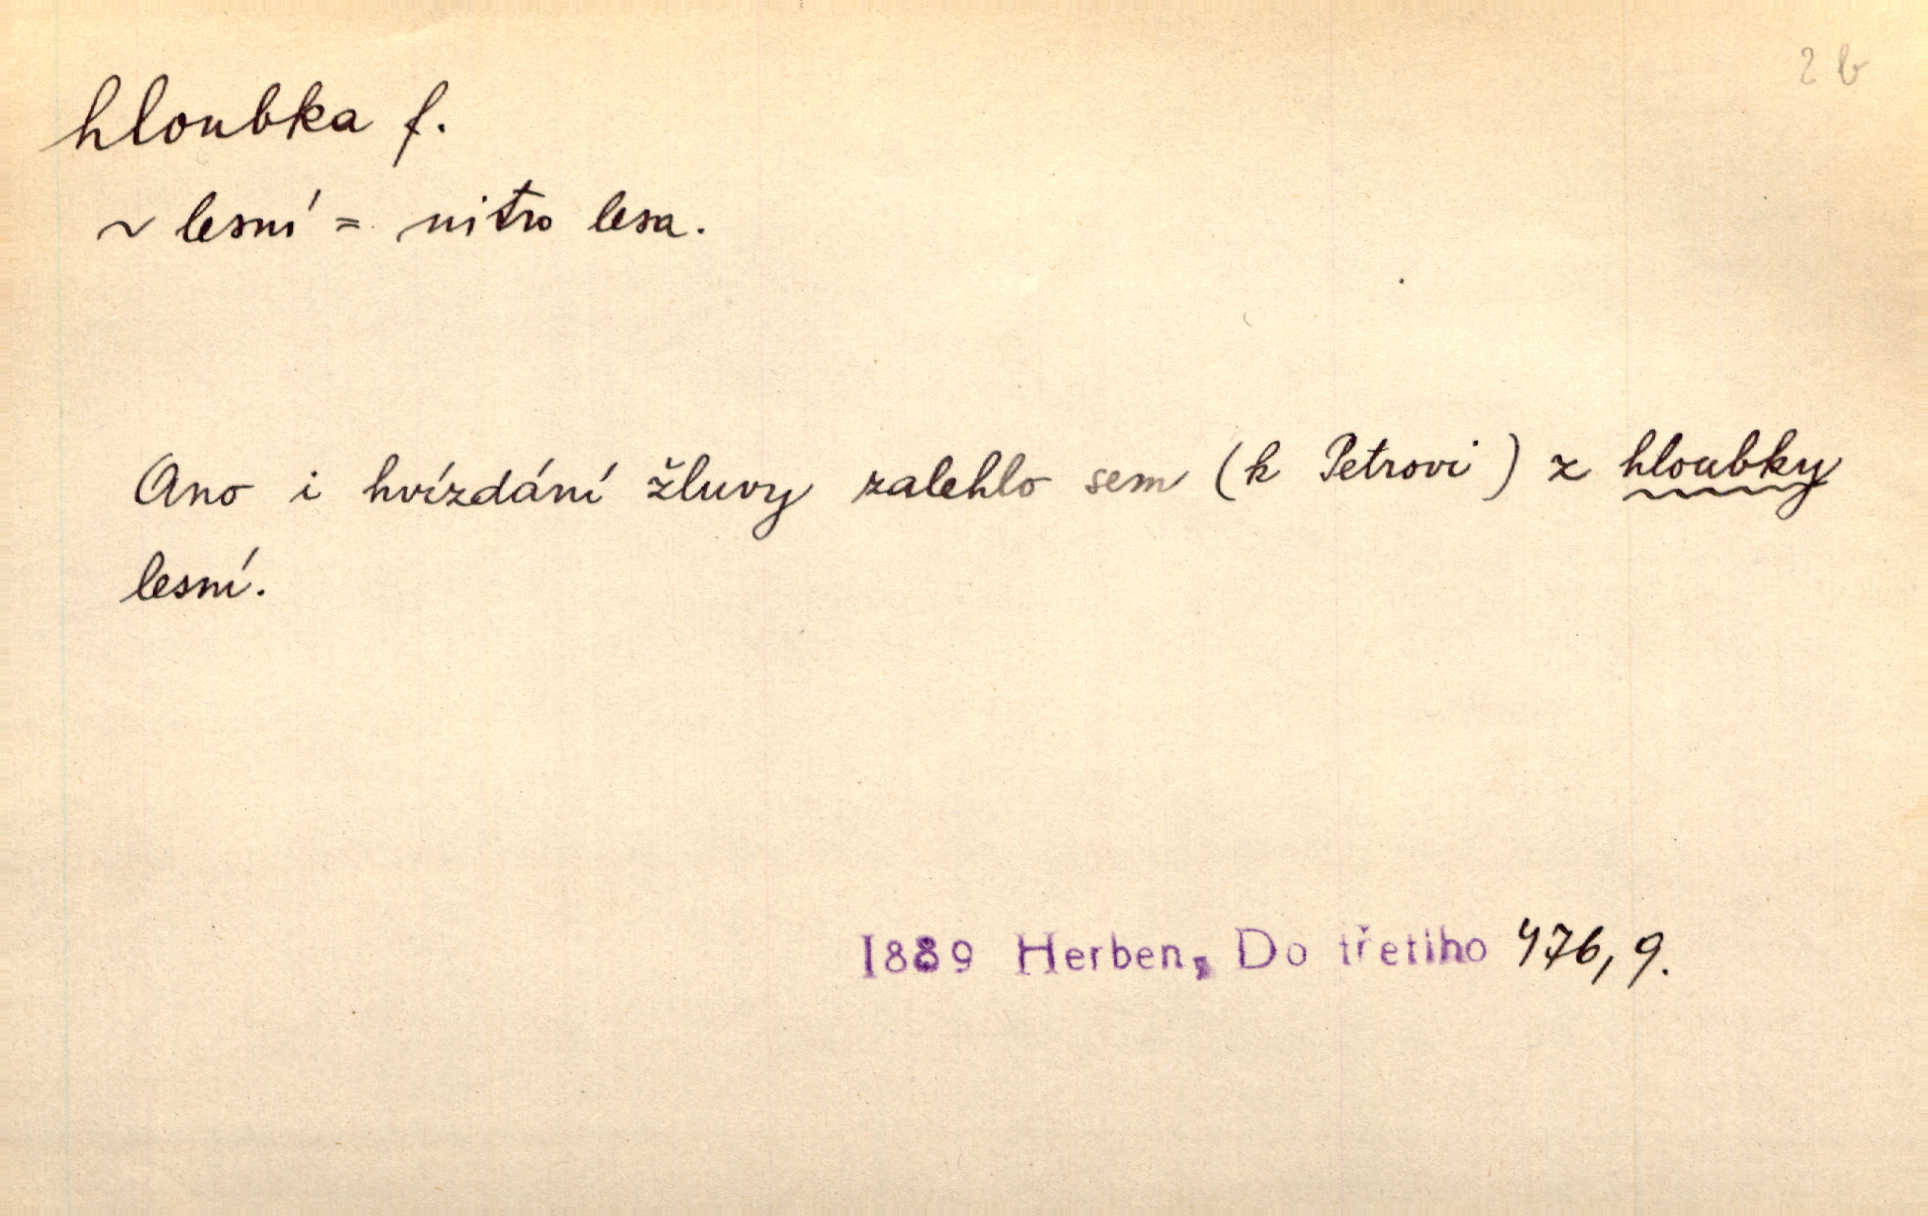 2 b
hloubka f.
~ lesní = nitro lesa.
Ano i hvízdání žluvy zalehlo sem (k Petrovi) z hloubky
lesní.
1889 Herben, Do třetího 476, 9.